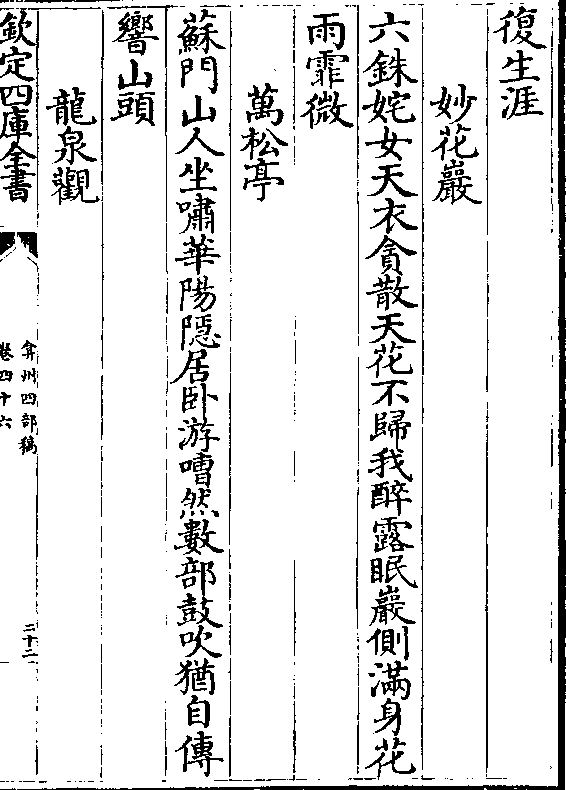 復生涯
妙花巖
六銖姹女天衣貪散天花不歸我醉露眠巖側滿身花
雨霏微
萬松亭
蘇門山人坐嘯華陽隱居卧游嘈然數部鼓吹猶自傳
響山頭
龍泉觀
欽定四庫全書
弇州四部稿
卷四十六
二十二